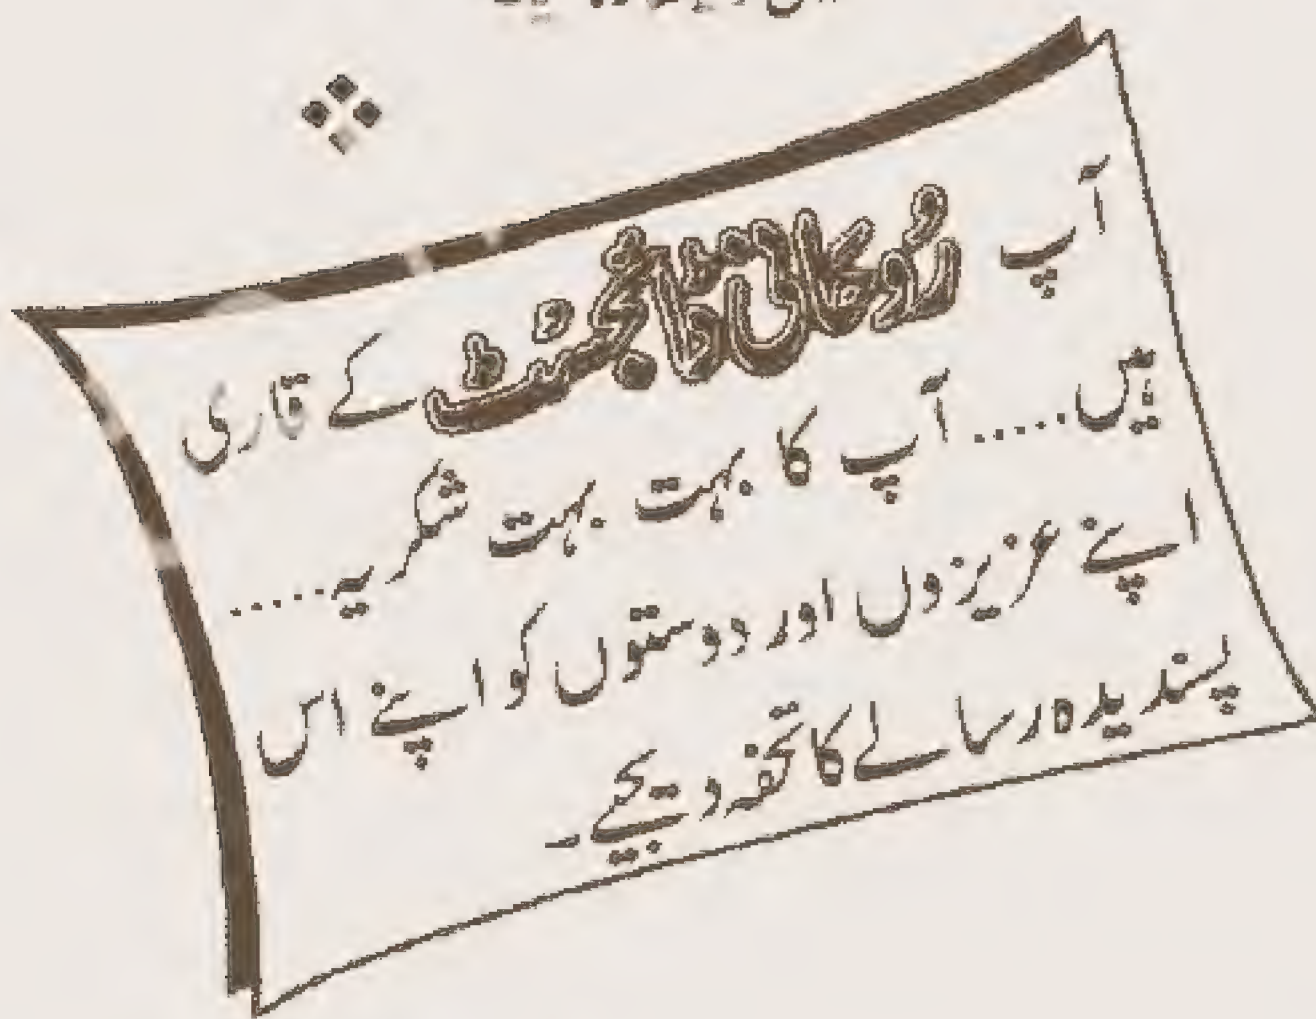 آپ رُوحانی ڈائجسٹ کے قاری
ہیں..... آپ کا بہت بہت شکریہ.....
اپنے عزیزوں اور دوستوں کو اپنے اس
پسندیدہ رسالے کا تحفہ دیجیے۔